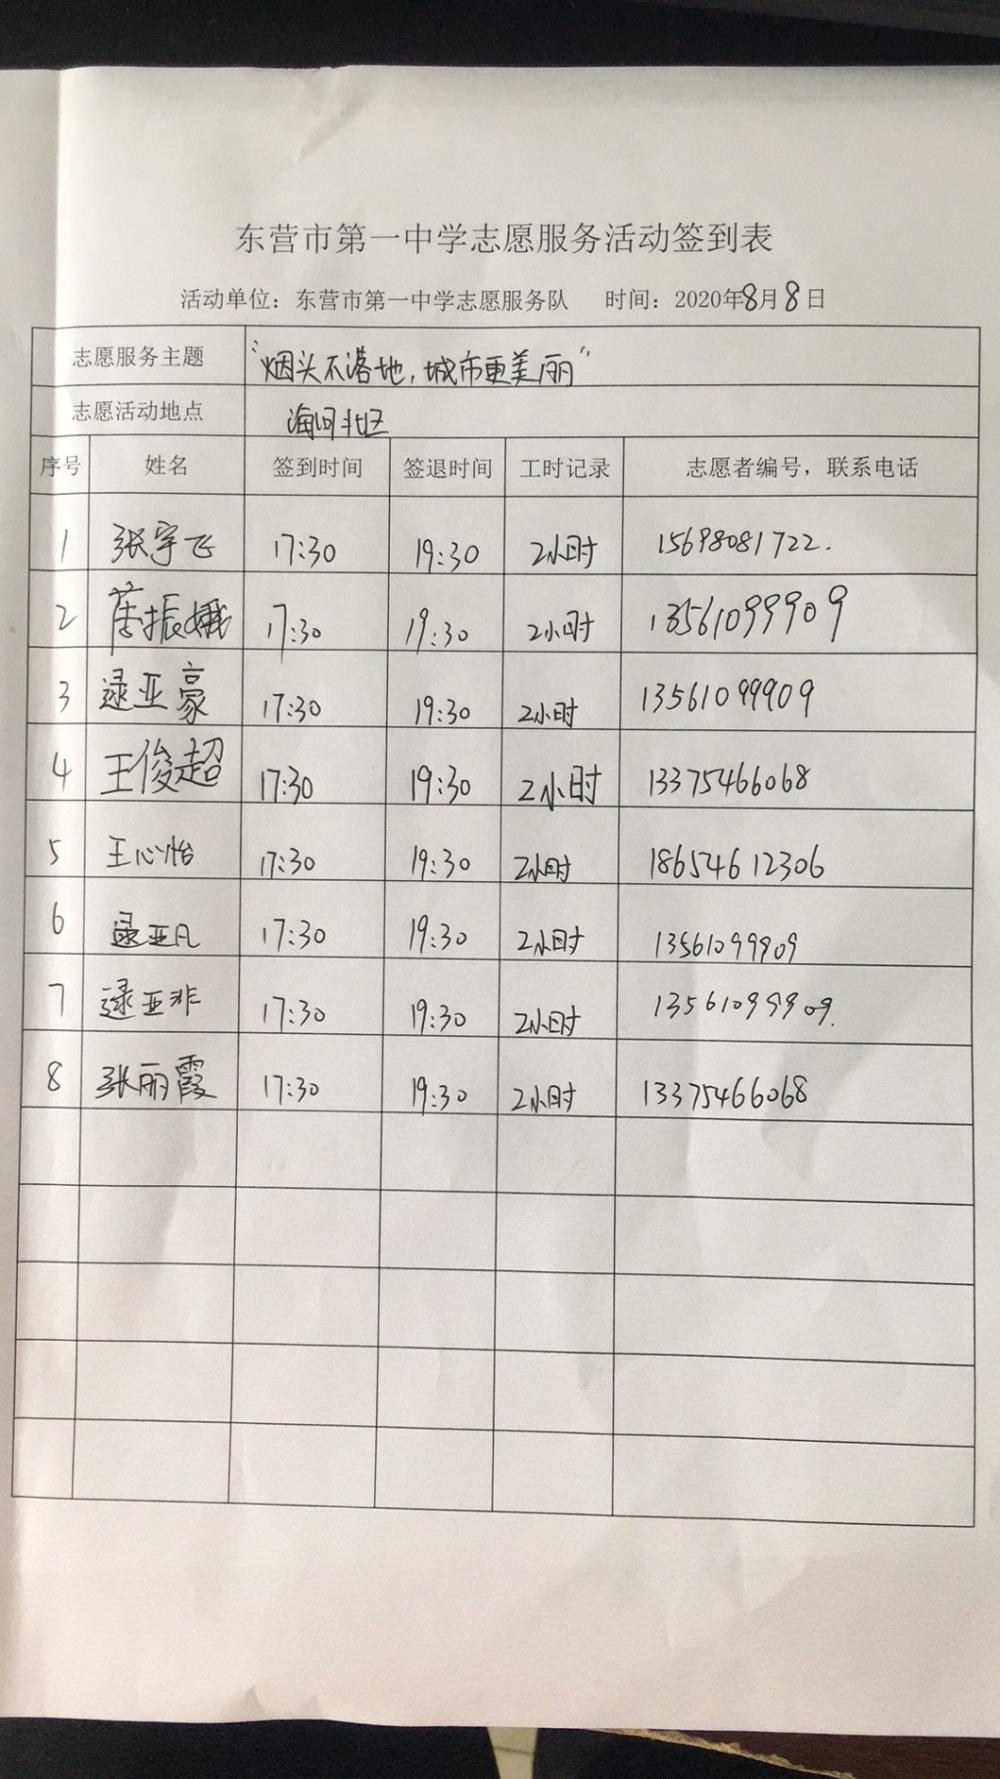 东营市第一中学志愿服务活动签到表
活动单位：东营市第一中学志愿服务队 时间：2020年8月8日
志愿服务主题 "烟头不落地，城市更美丽"
志愿活动地点 海河北区
序号 姓名 签到时间 签退时间 工时记录 志愿者编号，联系电话
1 张宇飞 17:30 19:30 2小时 15698081722.
2 振娥 17:30 19:30 2小时 13561099909
3 逯亚豪 17:30 19:30 2小时 13561099909
4 王俊超 17:30 19:30 2小时 13375466068
5 王心怡 17:30 19:30 2小时 18654612306
6 逯亚凡 17:30 19:30 2小时 13561099909
7 逯亚非 17:30 19:30 2小时 13561099909.
8 张丽霞 17:30 19:30 2小时 13375466068